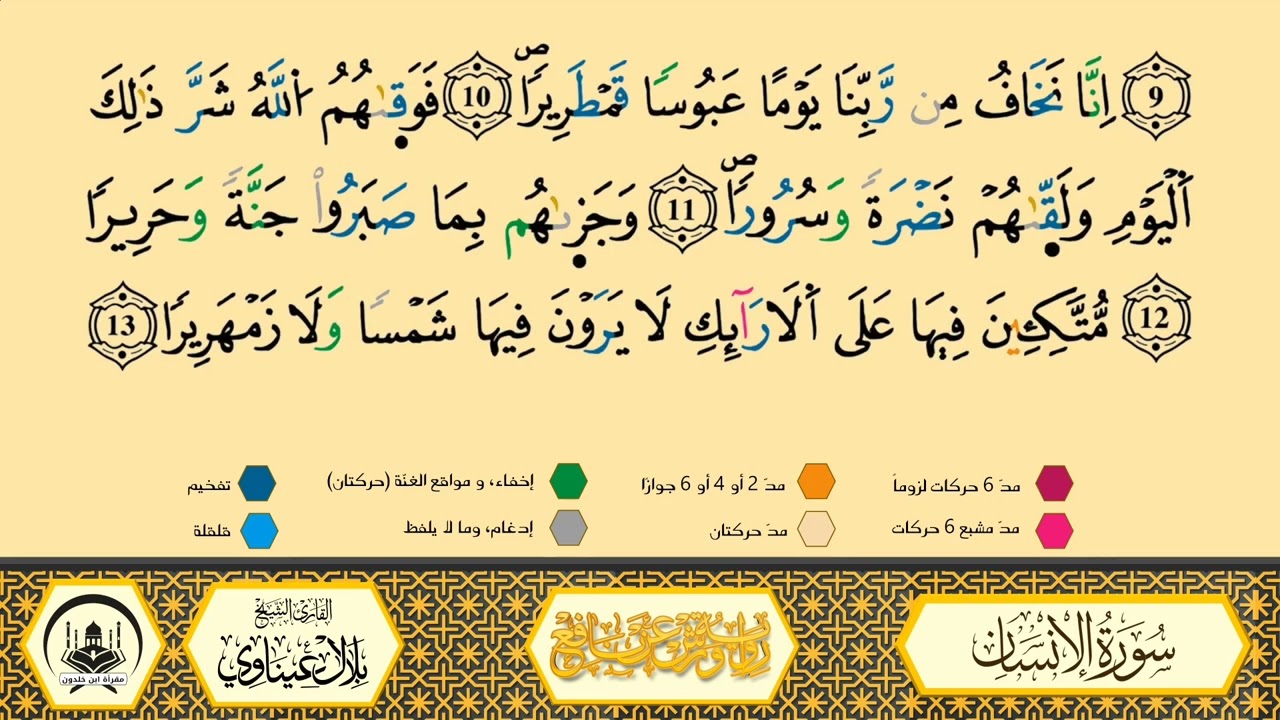 9 اِنَّا نَخَافُ مِن رَّبِّنَا يَوْمًا عَبُوسًا قَمْطَرِيرًاۖ 10 فَوَقٜىٰهُمُ اُ۬للَّهُ شَرَّ ذَٰلِكَ
اَ۬لْيَوْمِ وَلَقّٜىٰهُمْ نَضْرَةً وَسُرُورًاۖ 11 وَجَزٜىٰهُم بِمَا صَبَرُواْ جَنَّةً وَحَرِيرًا
12 مُّتَّكِـِٕينَ فِيهَا عَلَى اَ۬لَارَآئِكِ لَا يَرَوْنَ فِيهَا شَمْسًا وَلَا زَمْهَرِيرًا 13
مدّ 6 حركات لزوماً مدّ 2 أو 4 أو 6 جوازًا إخفاء، و مواقع الغنّة (حركتان) تفخيم
مدّ مشبع 6 حركات مدّ حركتان إدغام، وما لا يلفظ قلقلة
سُورَةُ الإِنْسَان
رواية ورش عن نافع
القارئ الشيخ
بلال عيناوي
مقرأة ابن خلدون